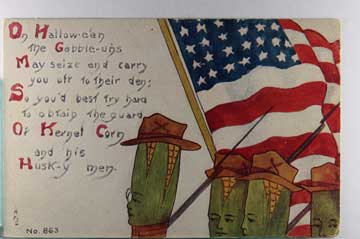 On Hallow-e'en
the Gobble-uns
May seize and carry
you off to their den;
So you'd best try hard
to obtain the guard
Of Kernel Corn
and his
Husk-y men.
No. 863